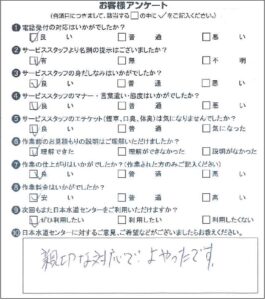 お客様アンケート
(各項目につきまして、該当する□の中に✓をご記入ください)
❶電話受付の対応はいかがでしたか？
☑良い □普通 □悪い
❷サービススタッフより名刺の提示はございましたか？
☑有 □無 □不明
❸サービススタッフの身だしなみはいかがでしたか？
☑良い □普通 □悪い
❹サービススタッフのマナー・言葉遣い・態度はいかがでしたか？
☑良い □普通 □悪い
❺サービススタッフのエチケット(煙草、口臭、体臭)は気になりませんでしたか？
☑良い □普通 □気になった
❻作業前のお見積もりの説明はご理解いただけましたか？
☑理解できた □理解ができなかった □説明がなかった
❼作業の仕上がりはいかがでしたか？(作業された方のみご記入ください)
☑良い □普通 □悪い
❽作業料金はいかがでしたか？
☑安い □普通 □高い
❾次回もまた日本水道センターをご利用いただけますか？
☑ぜひ利用したい □利用したい □利用したくない
❿日本水道センターに対するご意見、ご希望などがございましたらお教えください。
親切な対応でよかったです。